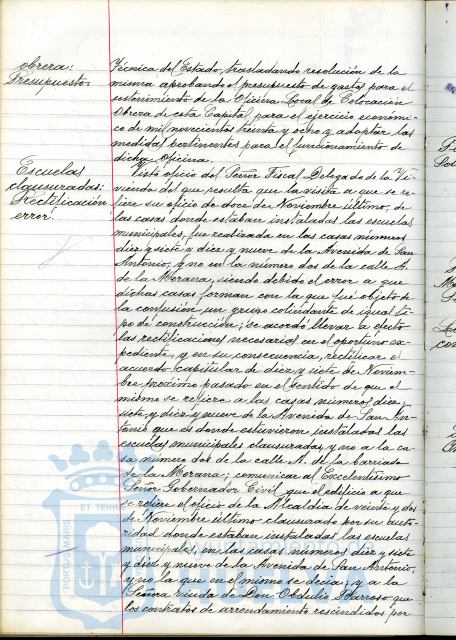 obrera:
Presupuesto.
Técnica del Estado, trasladando resolución de la
misma aprobando el presupuesto de gastos para el
sostenimiento de la Oficina Local de Colocación
Obrera de esta Capital para el ejercicio económi-
co de mil novecientos treinta y ocho y adoptar las
medidas pertinentes para el funcionamiento de
dicha Oficina.
Escuelas
clausuradas:
Rectificación
error:
Visto oficio del Señor Fiscal Delegado de la Vi-
vienda del que resulta que la visita a que se re-
fiere su oficio de doce de Noviembre último, de
las casas donde estaban instaladas las escuelas
municipales, fue realizada en las casas números
diez y siete y diez y nueve de la Avenida de San
Antonio, y no en la número dos de la calle A.
de la Morana, siendo debido el error a que
dichas casas forman con la que fué objeto de
la confusión un grupo colindante de igual ti-
po de construcción; se acordó llevar a efecto
las rectificaciones necesarias en el oportuno ex-
pediente, y en su consecuencia, rectificar el
acuerdo capitular de diez y siete de Noviem-
bre próximo pasado en el sentido de que el
mismo se refiere a las casas números diez y
siete y diez y nueve de la Avenida de San An-
tonio que es donde estuvieron instaladas las
escuelas municipales clausuradas, y no a la ca-
sa número dos de la calle A. de la barriada
de la Morana; comunicar al Excelentísimo
Señor Gobernador Civil que el edificio a que
se refiere el oficio de la Alcaldía de veinte y dos
de Noviembre último clausurado por su auto-
ridad donde estaban instaladas las escuelas
municipales, en las casas números diez y siete
y diez y nueve de la Avenida de San Antonio,
y no la que en el mismo se decía; y a la
Señora viuda de Don Obdulio que
los contratos de arrendamiento rescindidos por
PORTUS MARIS ET TERR